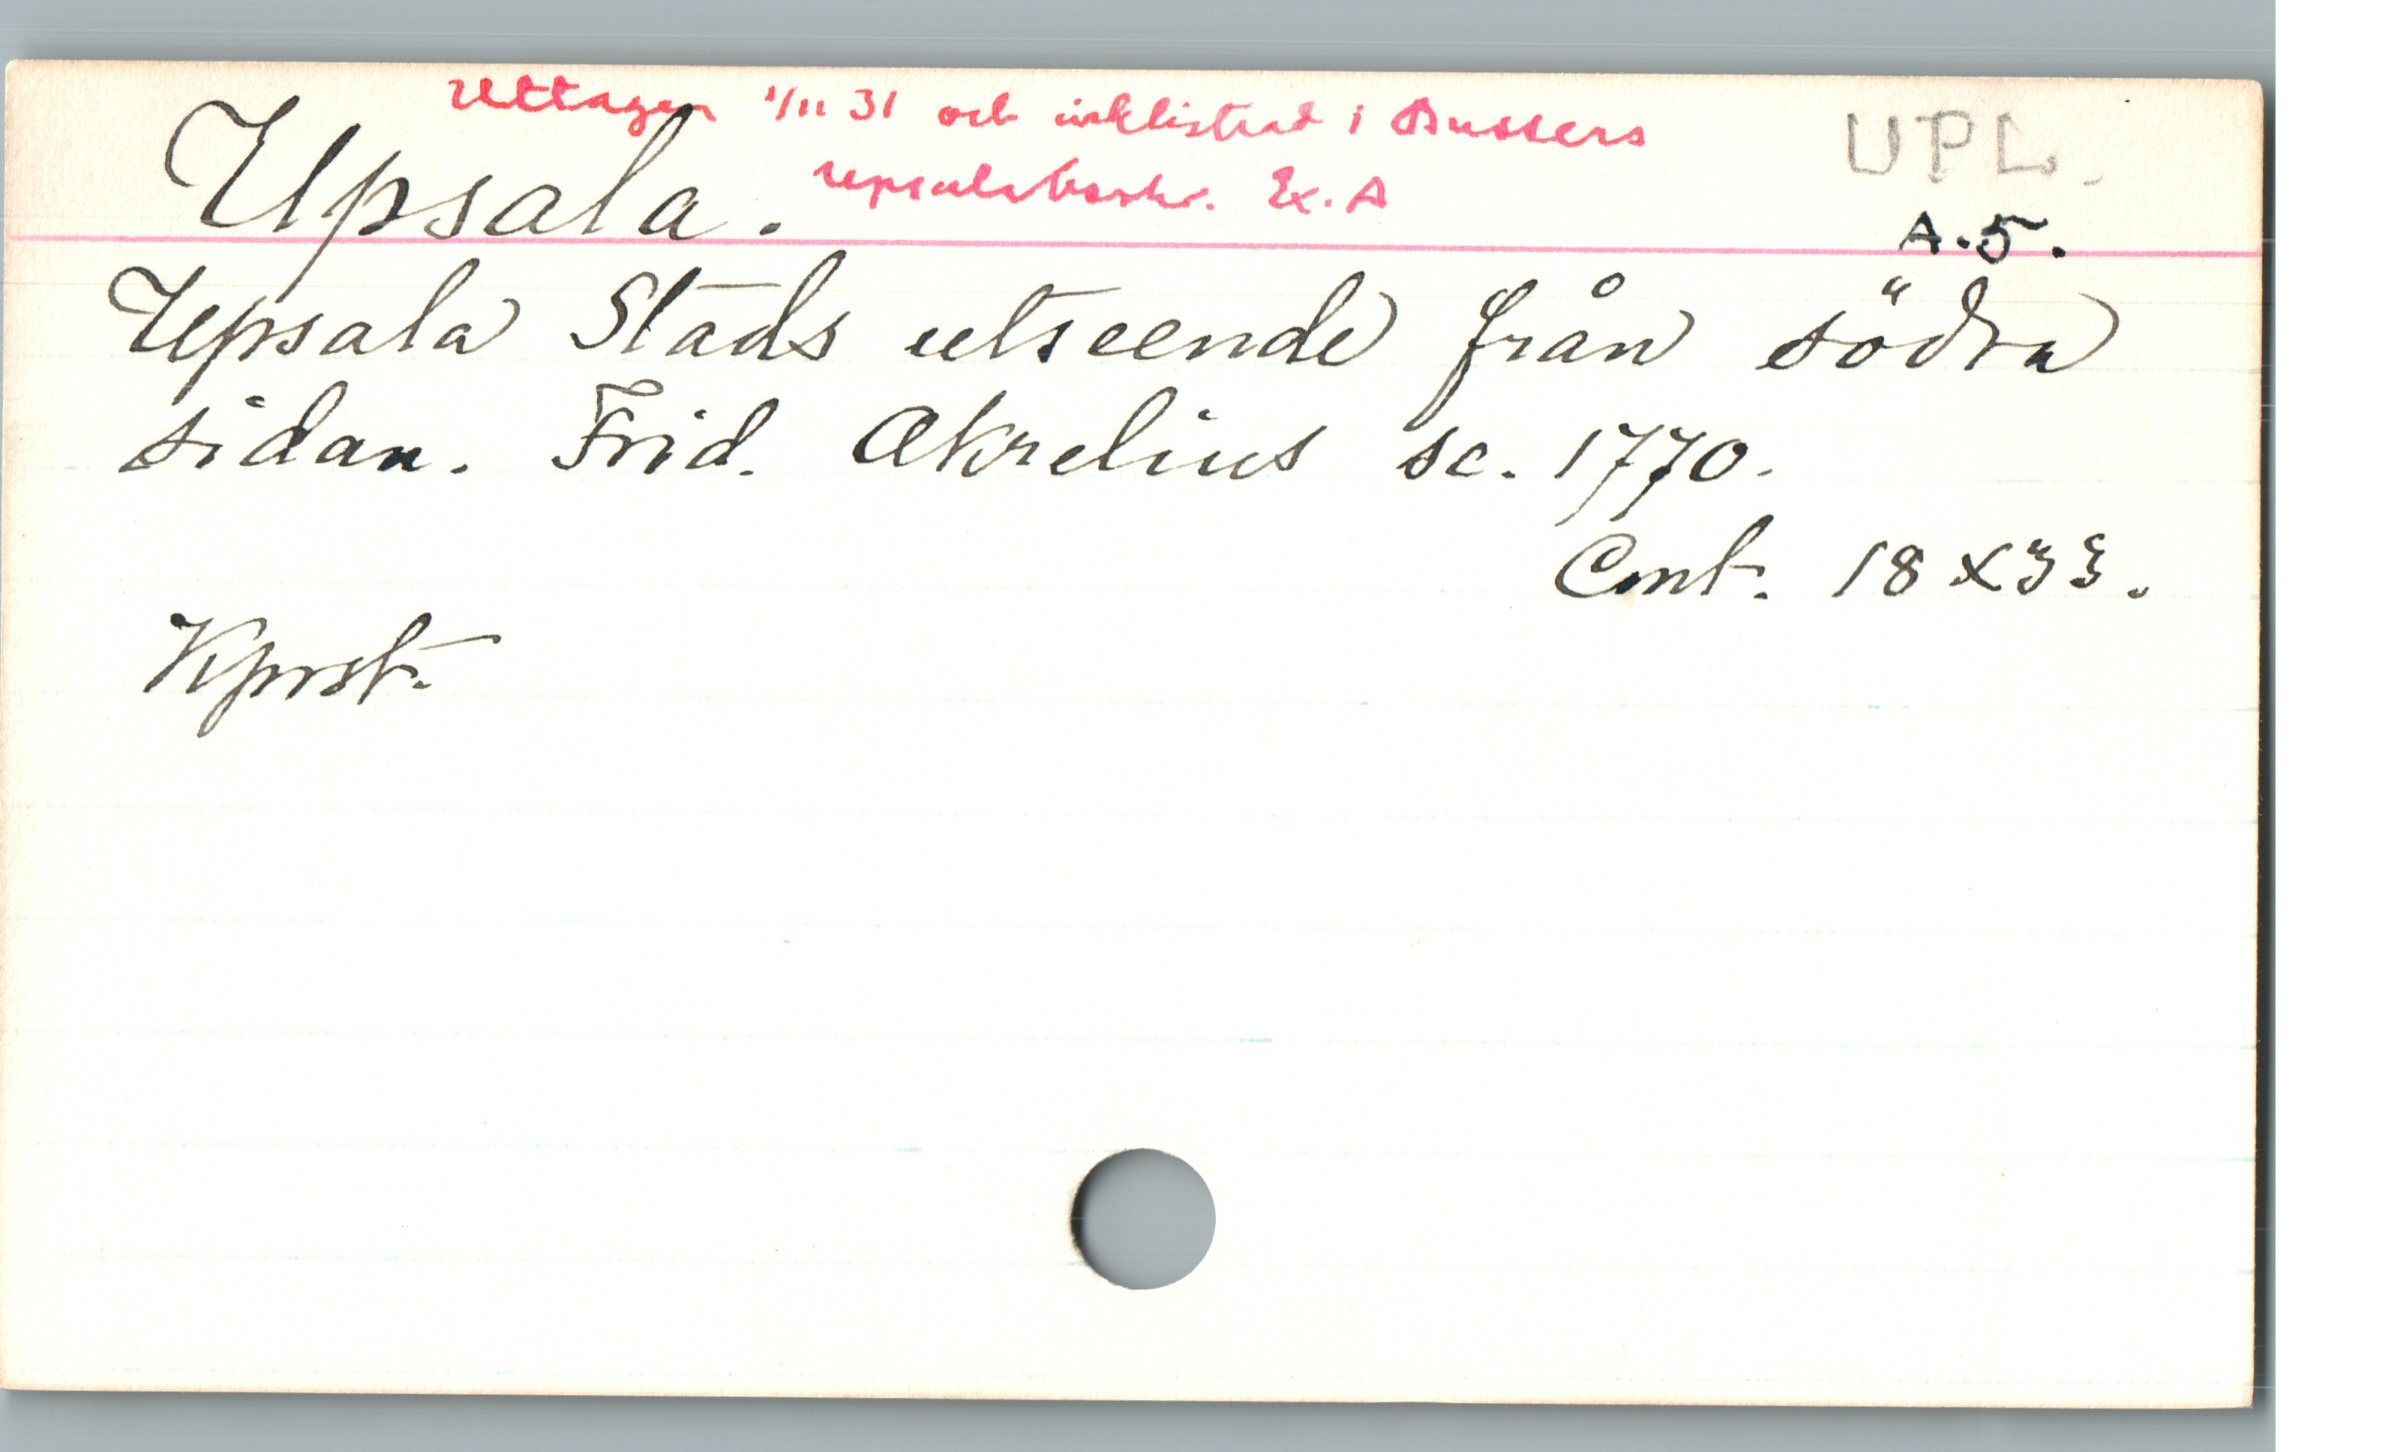 Uttagen 1/11 31 och inklistrad i Bussers
Upsalabeskr. Ex. A
UPL.
Upsala.
A.5.
Upsala Stads utseende från södra
sidan. Frid. Akrelius sc. 1770.
Cmt. 18 x 33.
Kprst.